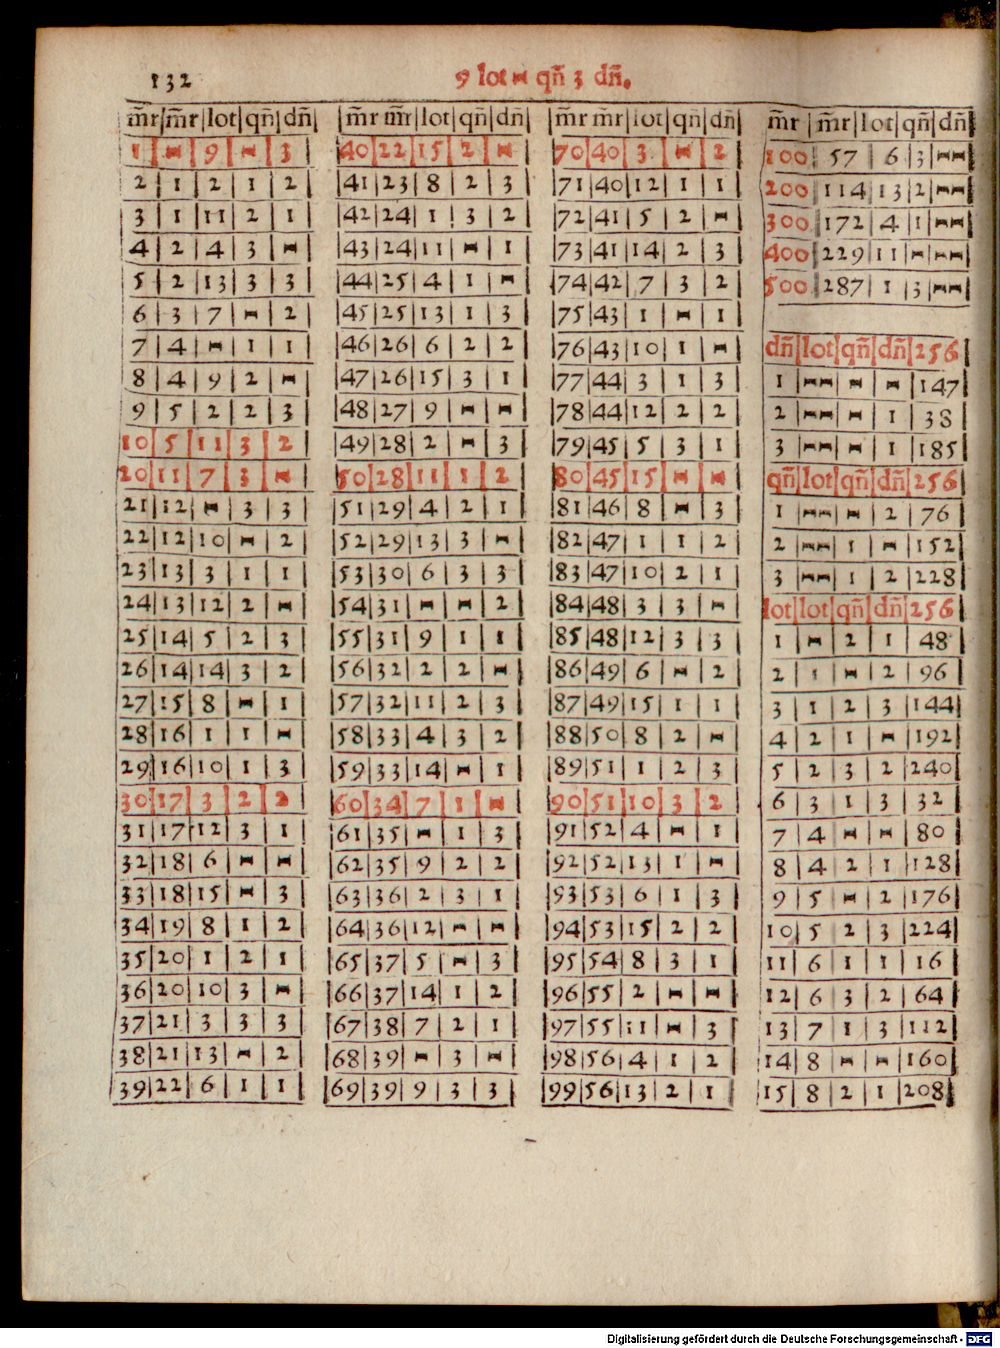 132
9 lot – qñ 3 dñ.
m̃r | m̃r | lot | qñ | dñ
1 | – | 9 | – | 3
2 | 1 | 2 | 1 | 2
3 | 1 | 11 | 2 | 1
4 | 2 | 4 | 3 | –
5 | 2 | 13 | 3 | 3
6 | 3 | 7 | – | 2
7 | 4 | – | 1 | 1
8 | 4 | 9 | 2 | –
9 | 5 | 2 | 2 | 3
10 | 5 | 11 | 3 | 2
20 | 11 | 7 | 3 | –
21 | 12 | – | 3 | 3
22 | 12 | 10 | – | 2
23 | 13 | 3 | 1 | 1
24 | 13 | 12 | 2 | –
25 | 14 | 5 | 2 | 3
26 | 14 | 14 | 3 | 2
27 | 15 | 8 | – | 1
28 | 16 | 1 | 1 | –
29 | 16 | 10 | 1 | 3
30 | 17 | 3 | 2 | 2
31 | 17 | 12 | 3 | 1
32 | 18 | 6 | – | –
33 | 18 | 15 | – | 3
34 | 19 | 8 | 1 | 2
35 | 20 | 1 | 2 | 1
36 | 20 | 10 | 3 | –
37 | 21 | 3 | 3 | 3
38 | 21 | 13 | – | 2
39 | 22 | 6 | 1 | 1
m̃r | m̃r | lot | qñ | dñ
40 | 22 | 15 | 2 | –
41 | 23 | 8 | 2 | 3
42 | 24 | 1 | 3 | 2
43 | 24 | 11 | – | 1
44 | 25 | 4 | 1 | –
45 | 25 | 13 | 1 | 3
46 | 26 | 6 | 2 | 2
47 | 26 | 15 | 3 | 1
48 | 27 | 9 | – | –
49 | 28 | 2 | – | 3
50 | 28 | 11 | 1 | 2
51 | 29 | 4 | 2 | 1
52 | 29 | 13 | 3 | –
53 | 30 | 6 | 3 | 3
54 | 31 | – | – | 2
55 | 31 | 9 | 1 | 1
56 | 32 | 2 | 2 | –
57 | 32 | 11 | 2 | 3
58 | 33 | 4 | 3 | 2
59 | 33 | 14 | – | 1
60 | 34 | 7 | 1 | –
61 | 35 | – | 1 | 3
62 | 35 | 9 | 2 | 2
63 | 36 | 2 | 3 | 1
64 | 36 | 12 | – | –
65 | 37 | 5 | – | 3
66 | 37 | 14 | 1 | 2
67 | 38 | 7 | 2 | 1
68 | 39 | – | 3 | –
69 | 39 | 9 | 3 | 3
m̃r | m̃r | lot | qñ | dñ
70 | 40 | 3 | – | 2
71 | 40 | 12 | 1 | 1
72 | 41 | 5 | 2 | –
73 | 41 | 14 | 2 | 3
74 | 42 | 7 | 3 | 2
75 | 43 | 1 | – | 1
76 | 43 | 10 | 1 | –
77 | 44 | 3 | 1 | 3
78 | 44 | 12 | 2 | 2
79 | 45 | 5 | 3 | 1
80 | 45 | 15 | – | –
81 | 46 | 8 | – | 3
82 | 47 | 1 | 1 | 2
83 | 47 | 10 | 2 | 1
84 | 48 | 3 | 3 | –
85 | 48 | 12 | 3 | 3
86 | 49 | 6 | – | 2
87 | 49 | 15 | 1 | 1
88 | 50 | 8 | 2 | –
89 | 51 | 1 | 2 | 3
90 | 51 | 10 | 3 | 2
91 | 52 | 4 | – | 1
92 | 52 | 13 | 1 | –
93 | 53 | 6 | 1 | 3
94 | 53 | 15 | 2 | 2
95 | 54 | 8 | 3 | 1
96 | 55 | 2 | – | –
97 | 55 | 11 | – | 3
98 | 56 | 4 | 1 | 2
99 | 56 | 13 | 2 | 1
m̃r | m̃r | lot | qñ | dñ
100 | 57 | 6 | 3 | ––
200 | 114 | 13 | 2 | ––
300 | 172 | 4 | 1 | ––
400 | 229 | 11 | – | ––
500 | 287 | 1 | 3 | ––
dñ | lot | qñ | dñ | 256
1 | –– | – | – | 147
2 | –– | – | 1 | 38
3 | –– | – | 1 | 185
qñ | lot | qñ | dñ | 256
1 | –– | – | 2 | 76
2 | –– | 1 | – | 152
3 | –– | 1 | 2 | 228
lot | lot | qñ | dñ | 256
1 | – | 2 | 1 | 48
2 | 1 | – | 2 | 96
3 | 1 | 2 | 3 | 144
4 | 2 | 1 | – | 192
5 | 2 | 3 | 2 | 240
6 | 3 | 1 | 3 | 32
7 | 4 | – | – | 80
8 | 4 | 2 | 1 | 128
9 | 5 | – | 2 | 176
10 | 5 | 2 | 3 | 224
11 | 6 | 1 | 1 | 16
12 | 6 | 3 | 2 | 64
13 | 7 | 1 | 3 | 112
14 | 8 | – | – | 160
15 | 8 | 2 | 1 | 208
Digitalisierung gefördert durch die Deutsche Forschungsgemeinschaft - DFG